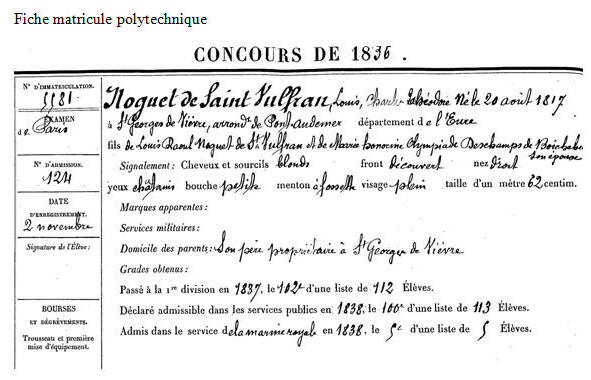 Fiche matricule polytechnique
CONCOURS DE 1836.
N° D'IMMATRICULATION.
5581
EXAMEN
de Paris
N° D'ADMISSION.
124
DATE
D'ENREGISTREMENT.
2 novembre
Signature de l'Élève:
BOURSES
ET DÉGRÈVEMENTS.
Trousseau et première
mise d'équipement.
Noguet de Saint Vulfran, Louis, Charles Théodore Né le 20 août 1817
à St Georges de Vièvre, arrondt de Pont-Audemer département de l'Eure
fils de Louis Raoul Noguet de St Vulfran et de Marie honorine Olympiade Deschamps de
son épouse
Signalement: Cheveux et sourcils blonds front découvert nez droit
yeux châtains bouche petite menton à fossette visage plein taille d'un mètre 62 centim.
Marques apparentes:
Services militaires:
Domicile des parents: Son père propriétaire à St Georges de Vièvre
Grades obtenus:
Passé à la 1re division en 1837, le 102e d'une liste de 112 Élèves.
Déclaré admissible dans les services publics en 1838, le 100e d'une liste de 113 Élèves.
Admis dans le service de la marine royale en 1838, le 5e d'une liste de 5 Élèves.